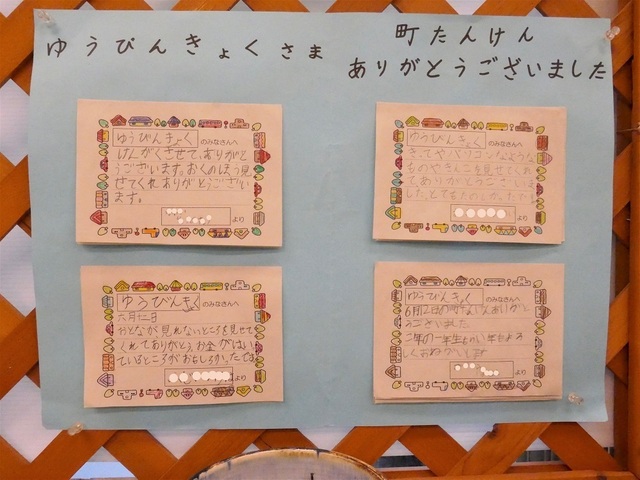 ゆうびんきょくさま
町たんけん
ありがとうございました
ゆうびんきょく のみなさんへ
けんがくさせて、ありがと
うございます。おくのほう見
せてくれありがとうござい
ます。
より
ゆうびんきょく のみなさんへ
ものやきんこを見せてくれ
て、ありがとうございま
した。
より
ゆうびんきょく のみなさんへ
六月二日
おとなが見れないところを見せて
くれてありがとう。お金が
ているところがおもしろかったです
より
ゆうびんきょく のみなさんへ
6月2日の町たんけんありがと
うございました
二年の一年生もらい年もよろ
しくおねがいします
より